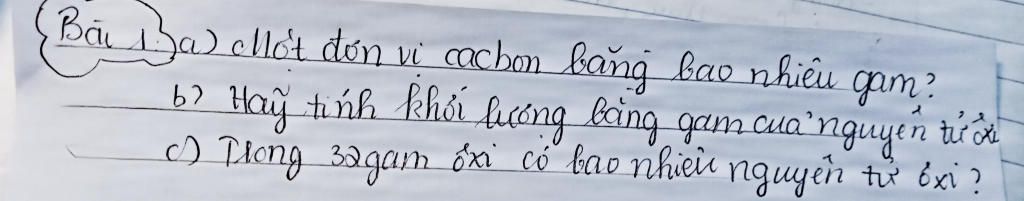 Bài 1: a) Một đơn vị cacbon bằng bao nhiêu gam?
b) Hãy tính khối lượng bằng gam của nguyên tử oxi
c) Trong 32 gam oxi có bao nhiêu nguyên tử oxi?